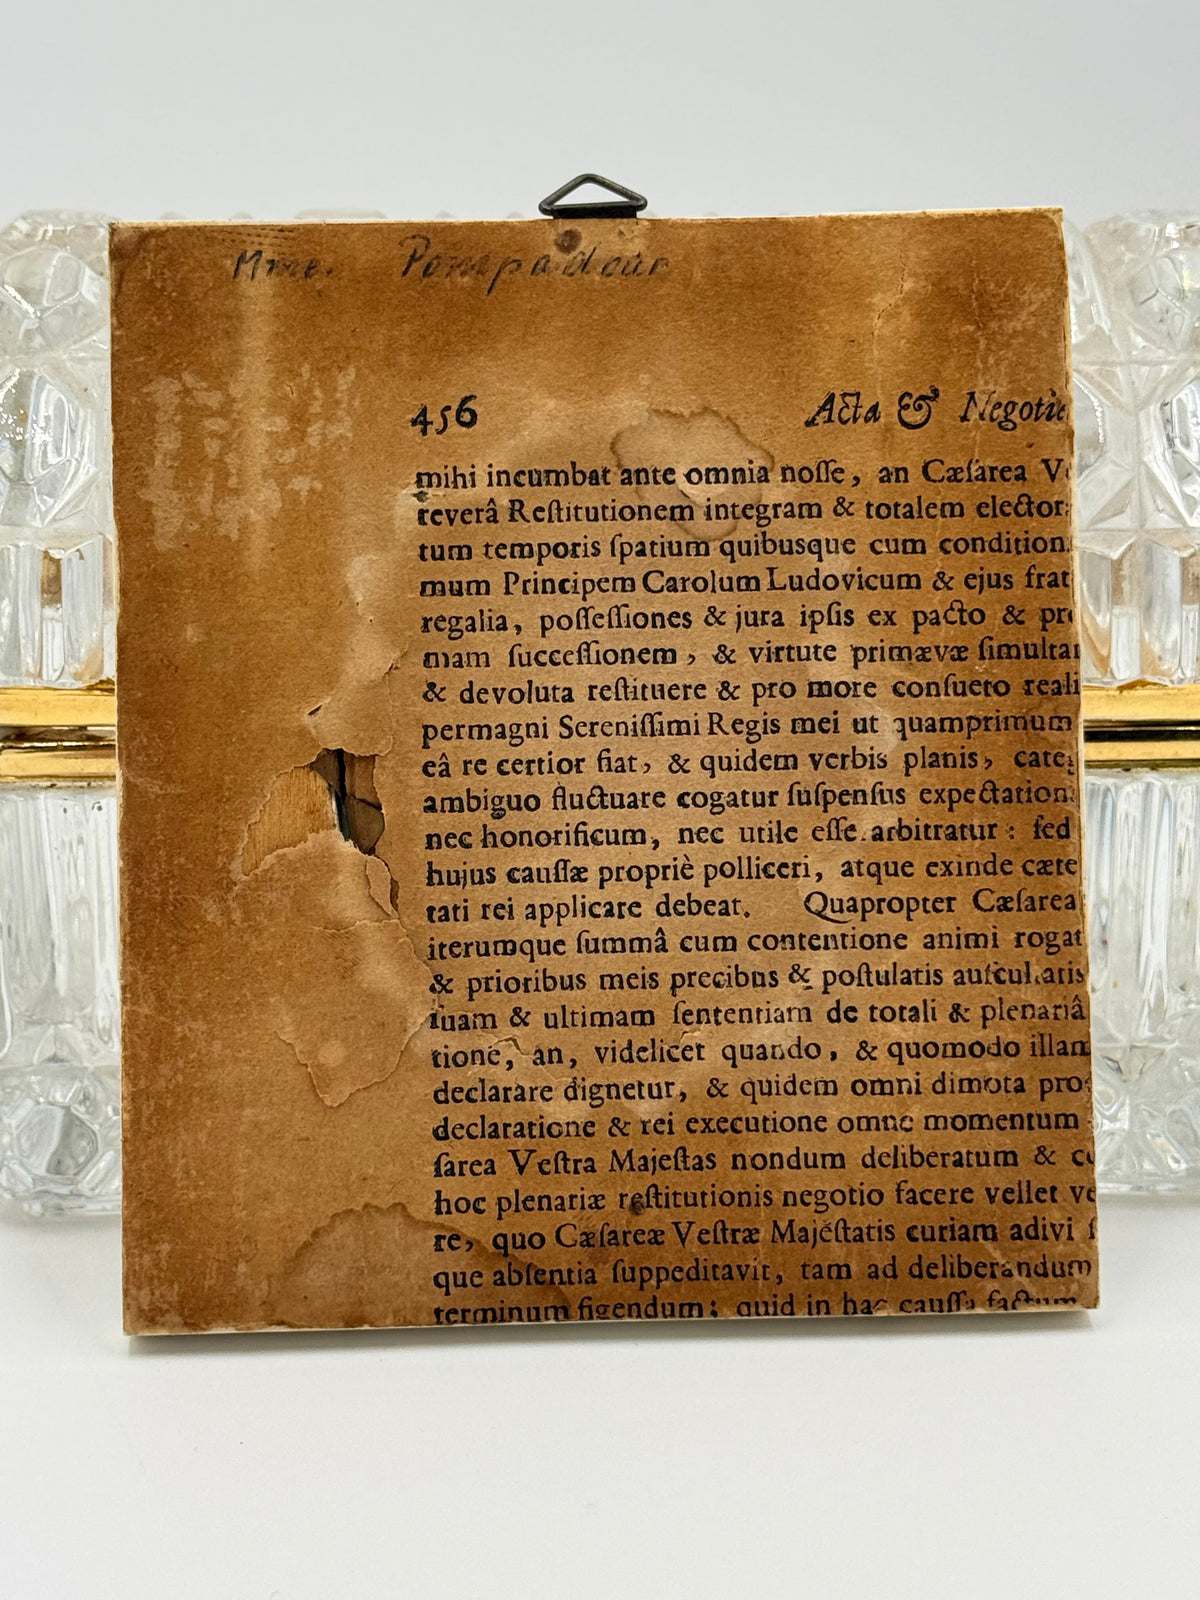 Mme. Pompadour
456 Acta & Negotie
mihi incumbat ante omnia noſſe, an Cæſarea V
reverâ Reſtitutionem integram & totalem elector
tum temporis ſpatium quibusque cum condition
mum Principem Carolum Ludovicum & ejus frat
regalia, poſſeſſiones & jura ipſis ex pacto & pr
mam ſucceſſionem, & virtute primævæ ſimultan
& devoluta reſtituere & pro more conſueto reali
permagni Sereniſſimi Regis mei ut quamprimum
eâ re certior fiat, & quidem verbis planis, cate
ambiguo fluctuare cogatur ſuſpenſus expectation
nec honorificum, nec utile eſſe arbitratur: ſed
hujus cauſſæ propriè polliceri, atque exinde cæte
tati rei applicare debeat. Quapropter Cæſarea
iterumque ſummâ cum contentione animi rogat
& prioribus meis precibus & poſtulatis auſcultatis
ſuam & ultimam ſententiam de totali & plenariâ
tione, an, videlicet quando, & quomodo illam
declarare dignetur, & quidem omni dimota pro
declaratione & rei executione omne momentum
ſarea Veſtra Majeſtas nondum deliberatum & c
hoc plenariæ reſtitutionis negotio facere vellet ve
re, quo Cæſareæ Veſtræ Majeſtatis curiam adivi ſ
que abſentia ſuppeditavit, tam ad deliberandum
terminum figendum; quid in hac cauſſa factum